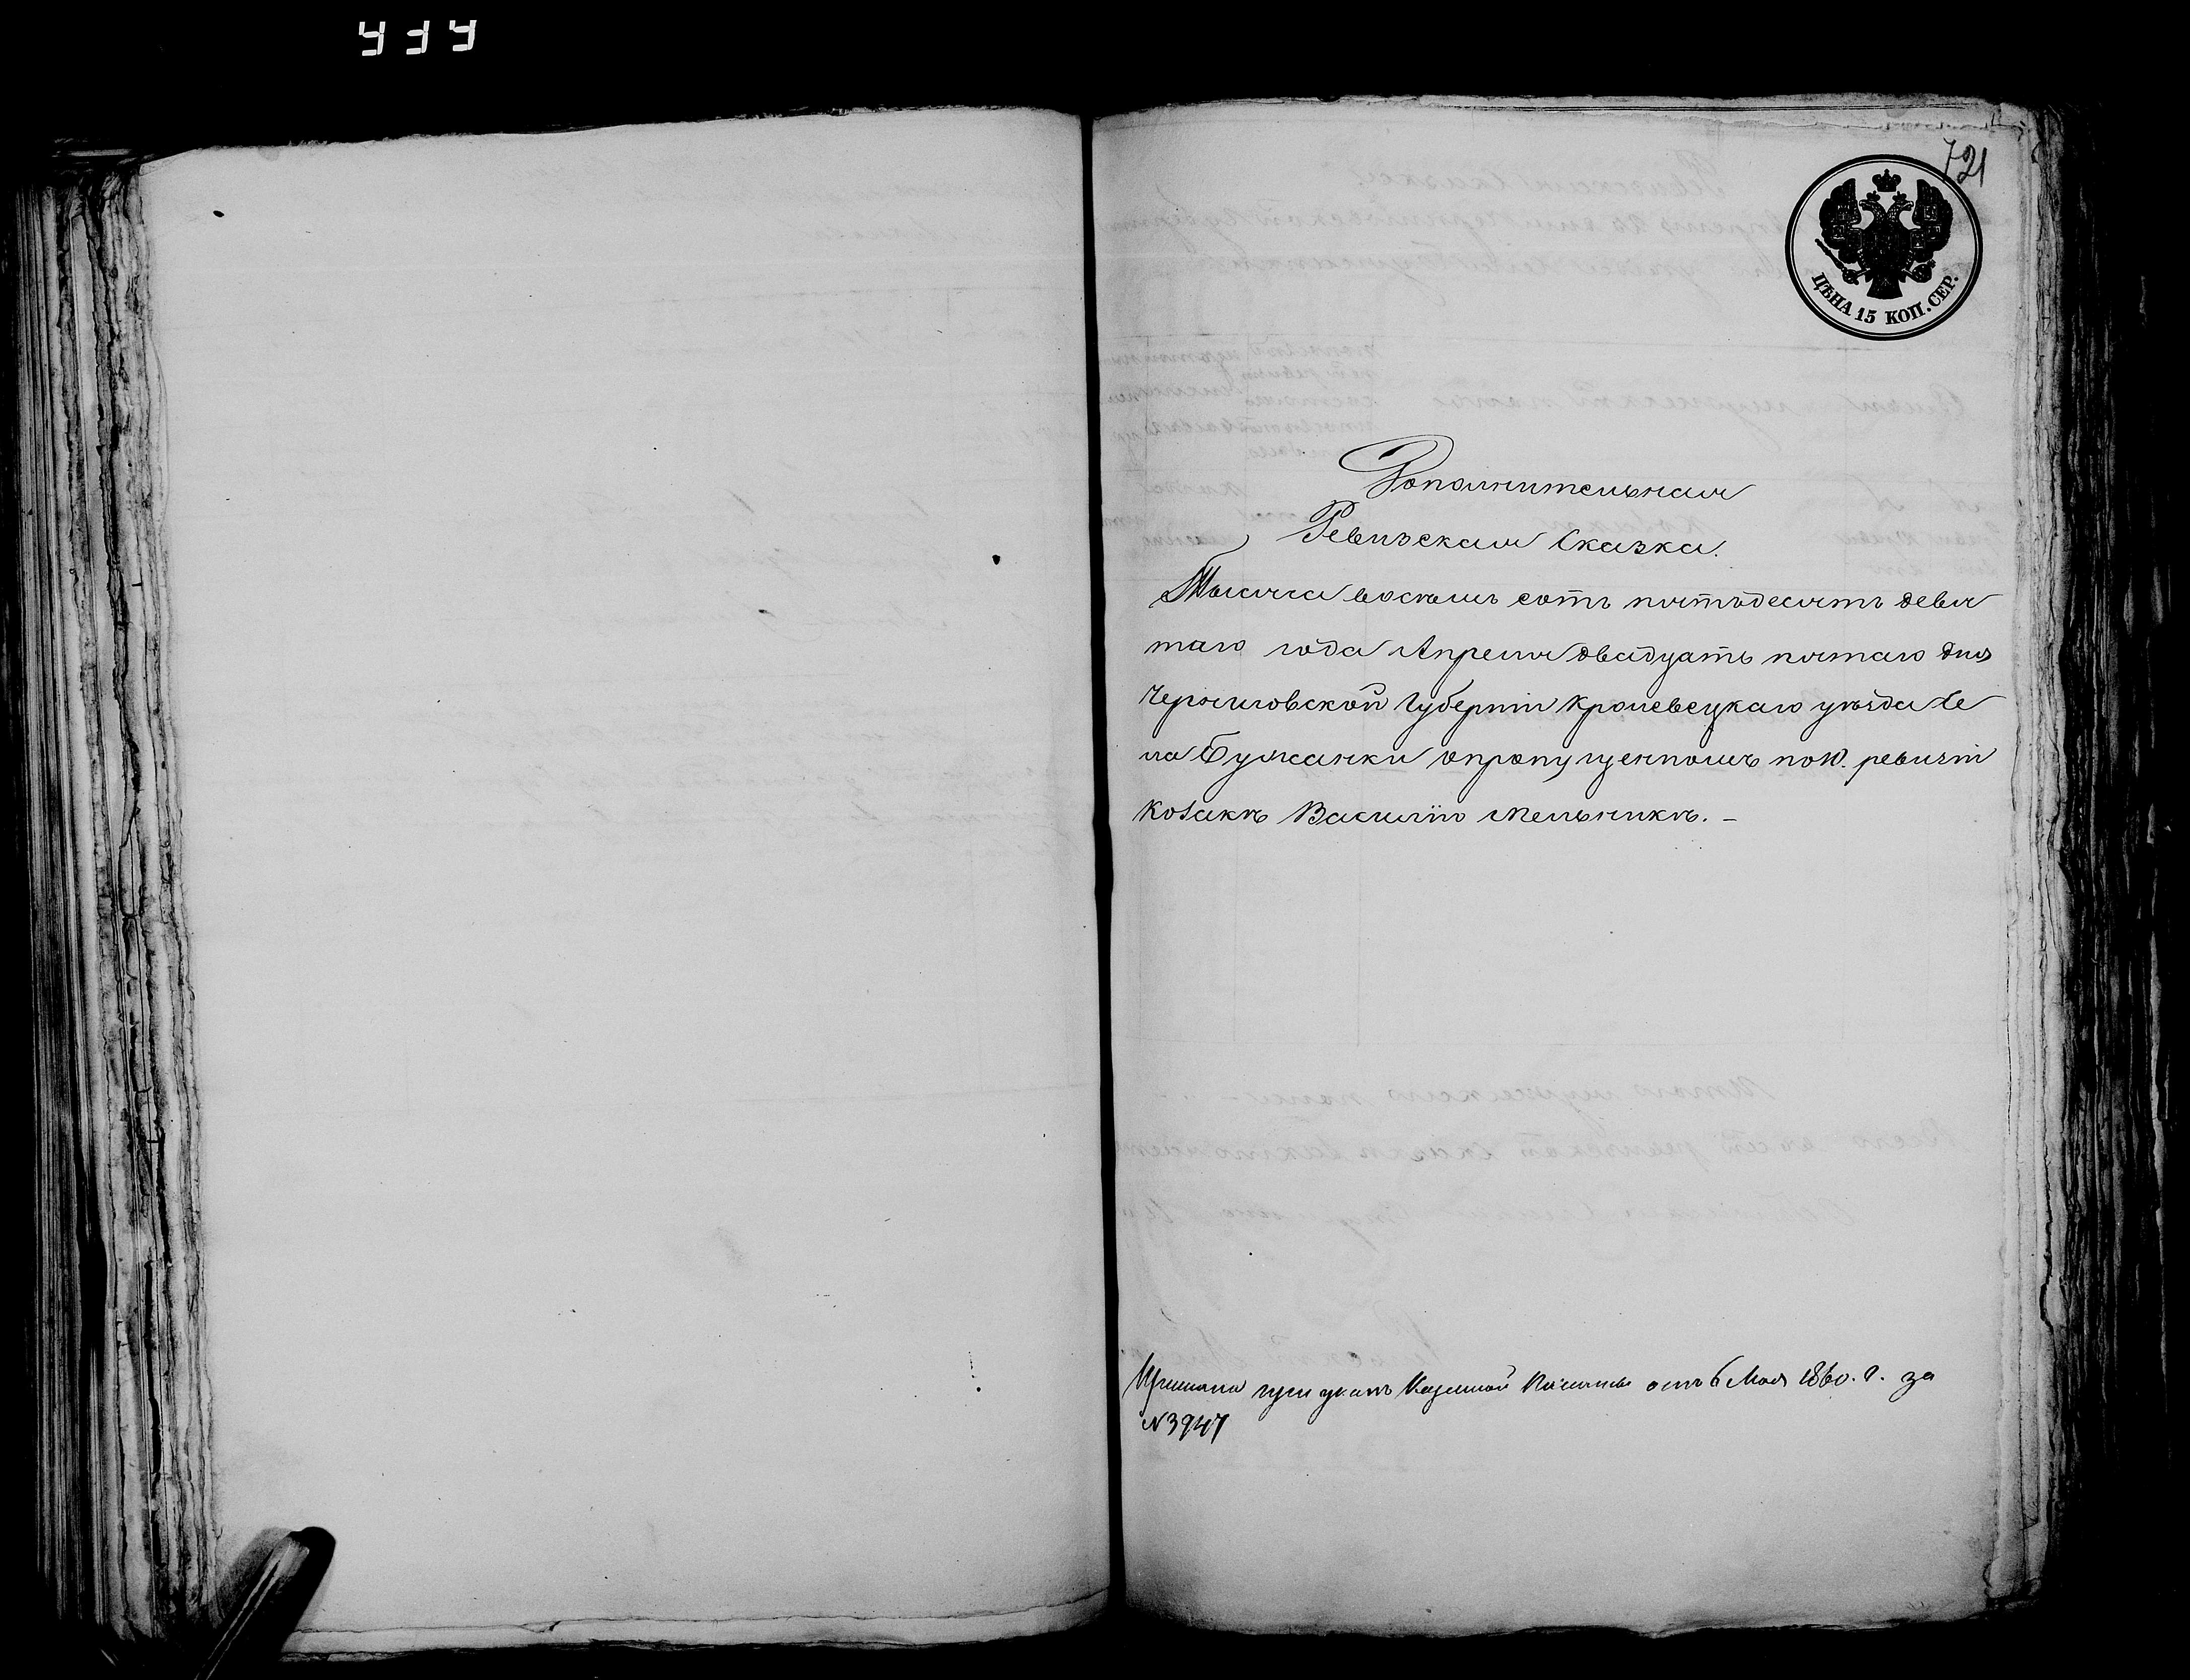 721
ЦѢНА 15 КОП. СЕР.
Дополнительная
Ревизская Сказка.
Тысяча восемь сотъ пятьдесятъ девя
таго года Апреля двадцать пятаго дня
Черниговской Губерніи Кролевецкаго уѣзда Се
ла Бужанки о пропущенномъ по 10. ревизіи
козакѣ Василію Мельникѣ. -
при указѣ Казенной Палаты отъ 6 Мая 1860. г. за
№3947